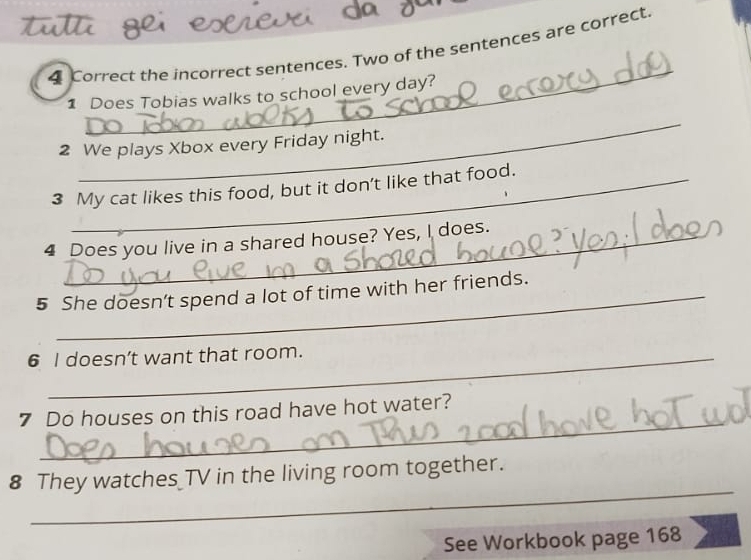 tutti gli esercizi da
4 Correct the incorrect sentences. Two of the sentences are correct.
1 Does Tobias walks to school every day?
Do Tobias walks to school every day
2 We plays Xbox every Friday night.
3 My cat likes this food, but it don't like that food.
4 Does you live in a shared house? Yes, I does.
Do you live in a shared house? yes, I does
5 She doesn't spend a lot of time with her friends.
6 I doesn't want that room.
7 Do houses on this road have hot water?
Does houses on this road have hot
8 They watches TV in the living room together.
See Workbook page 168